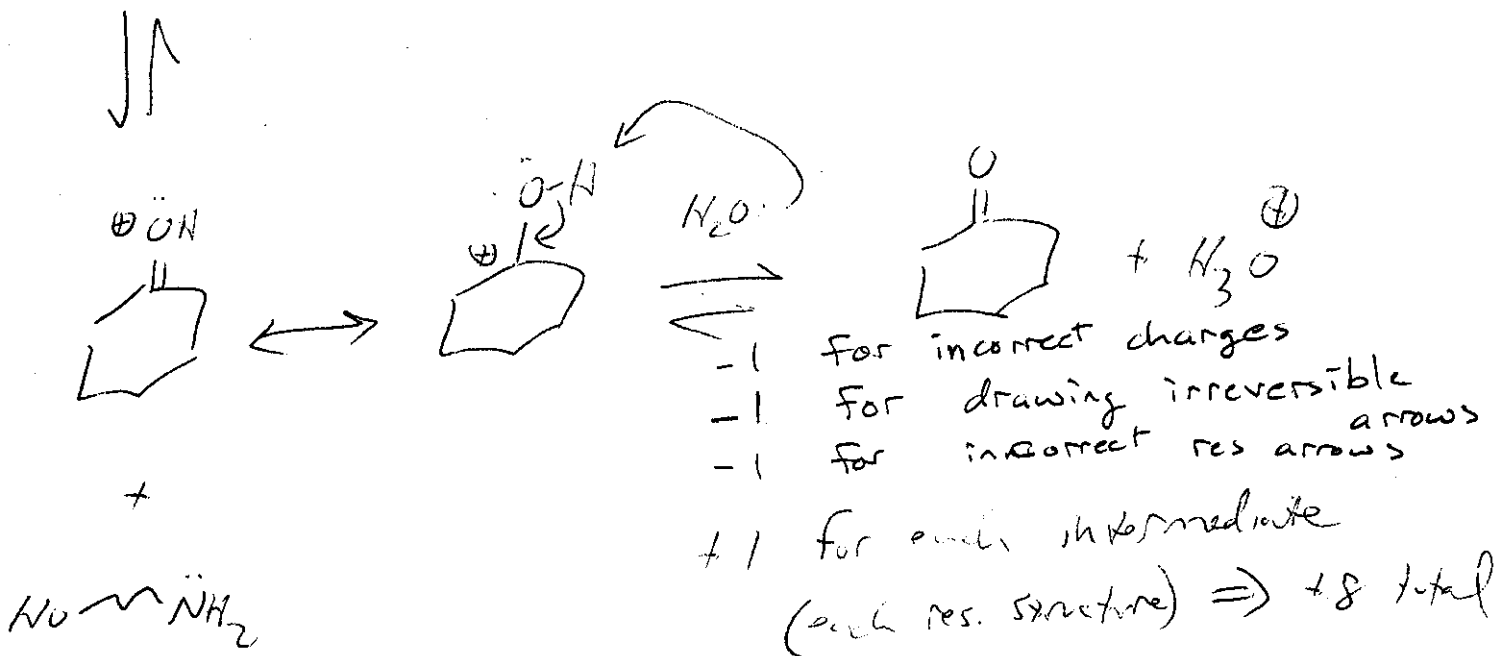 ⊕ ÖH
Ö-H
⊕
H₂O:
O
+ H₃O⊕
-1 for incorrect charges
-1 for drawing irreversible
arrows
-1 for incorrect res arrows
+
+1 for each intermediate
(each res. structure) ⇒ +8 total
HO N̈H₂